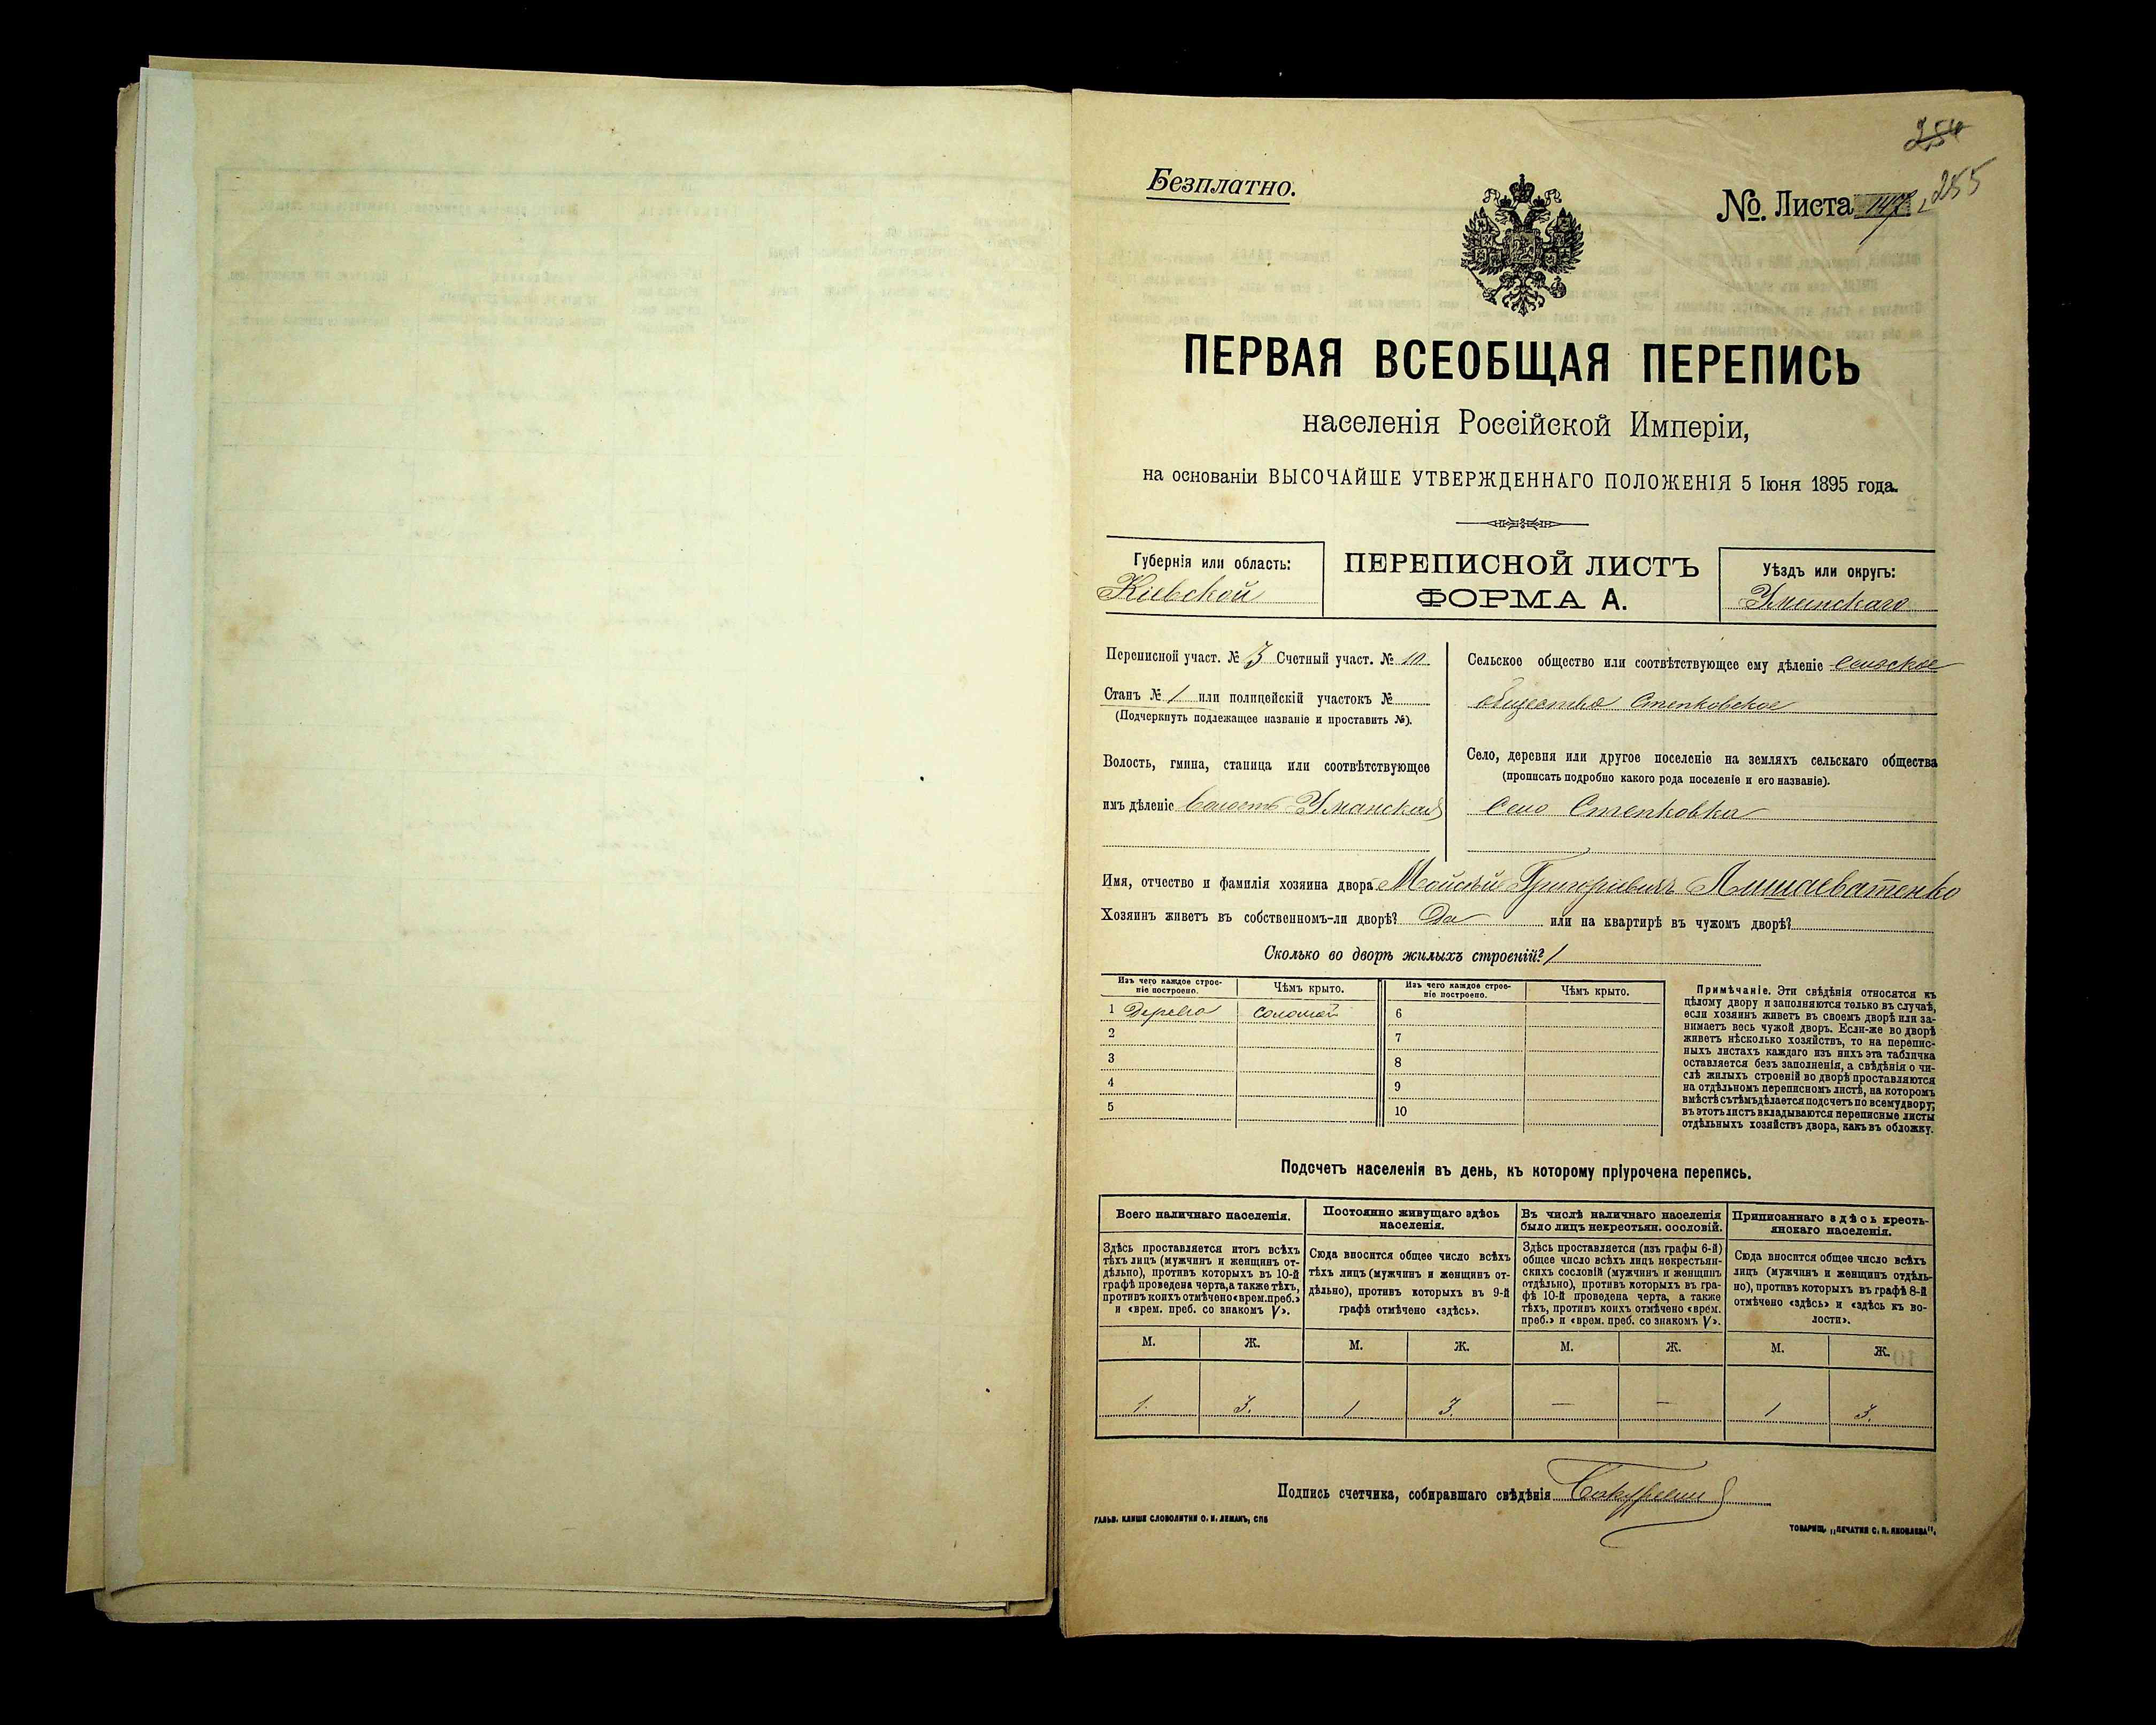 254
Безплатно.
№. Листа 147 255
ПЕРВАЯ ВСЕОБЩАЯ ПЕРЕПИСЬ
населенія Россійской Имперіи,
на основаніи ВЫСОЧАЙШЕ УТВЕРЖДЕННАГО ПОЛОЖЕНІЯ 5 Іюня 1895 года.
Губернія или область:
Кіевской
ПЕРЕПИСНОЙ ЛИСТЪ
ФОРМА А.
Уѣздъ или округъ:
Уманскаго
Переписной участ. № 3 Счетный участ. № 10
Станъ № 1 или полицейскій участокъ №
(Подчеркнуть подлежащее названіе и проставить №).
Волость, гмина, станица или соотвѣтствующее
имъ дѣленіе волость Уманская
Сельское общество или соотвѣтствующее ему дѣленіе Сельское
общество Степковское
Село, деревня или другое поселеніе на земляхъ сельскаго общества
(прописать подробно какого рода поселеніе и его названіе).
Село Степковка
Имя, отчество и фамилія хозяина двора Мойсѣй Григоріевичъ
Хозяинъ живетъ въ собственномъ-ли дворѣ? Да или на квартирѣ въ чужомъ дворѣ?
Сколько во дворѣ жилыхъ строеній? 1
Изъ чего каждое строе-
ніе построено.
Чѣмъ крыто.
Изъ чего каждое строе-
ніе построено.
Чѣмъ крыто.
1 Дерева соломой
2
3
4
5
6
7
8
9
10
Примѣчаніе. Эти свѣдѣнія относятся къ
цѣлому двору и заполняются только въ случаѣ,
если хозяинъ живетъ въ своемъ дворѣ или за-
нимаетъ весь чужой дворъ. Если-же во дворѣ
живетъ нѣсколько хозяйствъ, то на перепис-
ныхъ листахъ каждаго изъ нихъ эта табличка
оставляется безъ заполненія, а свѣдѣнія о чи-
слѣ жилыхъ строеній во дворѣ проставляются
на отдѣльномъ переписномъ листѣ, на которомъ
вмѣстѣ съ тѣмъ дѣлается подсчетъ по всему двору;
въ этотъ листъ вкладываются переписные листы
отдѣльныхъ хозяйствъ двора, какъ въ обложку.
Подсчетъ населенія въ день, къ которому пріурочена перепись.
Всего наличнаго населенія.
Здѣсь проставляется итогъ всѣхъ
тѣхъ лицъ (мужчинъ и женщинъ от-
дѣльно), противъ которыхъ въ 10-й
графѣ проведена черта, а также тѣхъ,
противъ коихъ отмѣчено «врем. преб.»
и «врем. преб. со знакомъ V».
Постоянно живущаго здѣсь
населенія.
Сюда вносится общее число всѣхъ
тѣхъ лицъ (мужчинъ и женщинъ от-
дѣльно), противъ которыхъ въ 9-й
графѣ отмѣчено «здѣсь».
Въ числѣ наличнаго населенія
было лицъ некрестьян. сословій.
Здѣсь проставляется (изъ графы 6-й)
общее число всѣхъ лицъ некрестьян-
скихъ сословій (мужчинъ и женщинъ
отдѣльно), противъ которыхъ въ гра-
фѣ 10-й проведена черта, а также
тѣхъ, противъ коихъ отмѣчено «врем.
преб.» и «врем. преб. со знакомъ V».
Приписаннаго здѣсь кресть-
янскаго населенія.
Сюда вносится общее число всѣхъ
лицъ (мужчинъ и женщинъ отдѣль-
но), противъ которыхъ въ графѣ 8-й
отмѣчено «здѣсь» и «здѣсь къ во-
лости».
М. Ж. М. Ж. М. Ж. М. Ж.
1. 3. 1 3. — — 1 3.
Подпись счетчика, собиравшаго свѣдѣнія
ГАЛЬВ. КЛИШЕ СЛОВОЛИТНИ О. И. ЛЕМАНЪ, СПБ
ТОВАРИЩ. „ПЕЧАТНЯ С. П. ЯКОВЛЕВА".